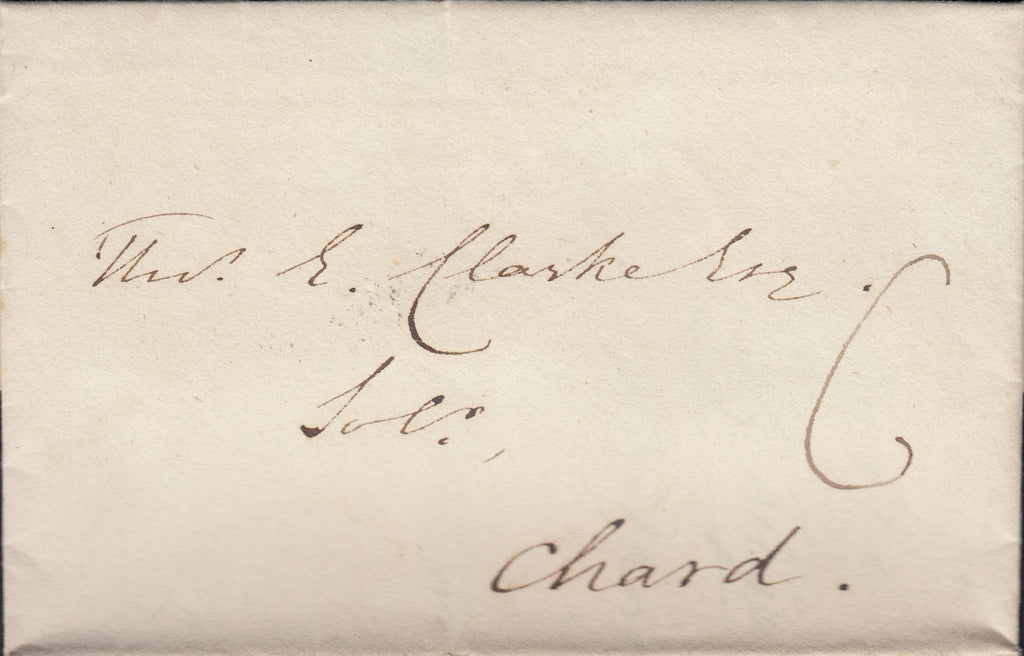 Thos. E. Clarke Esq.
Solr.,
Chard.